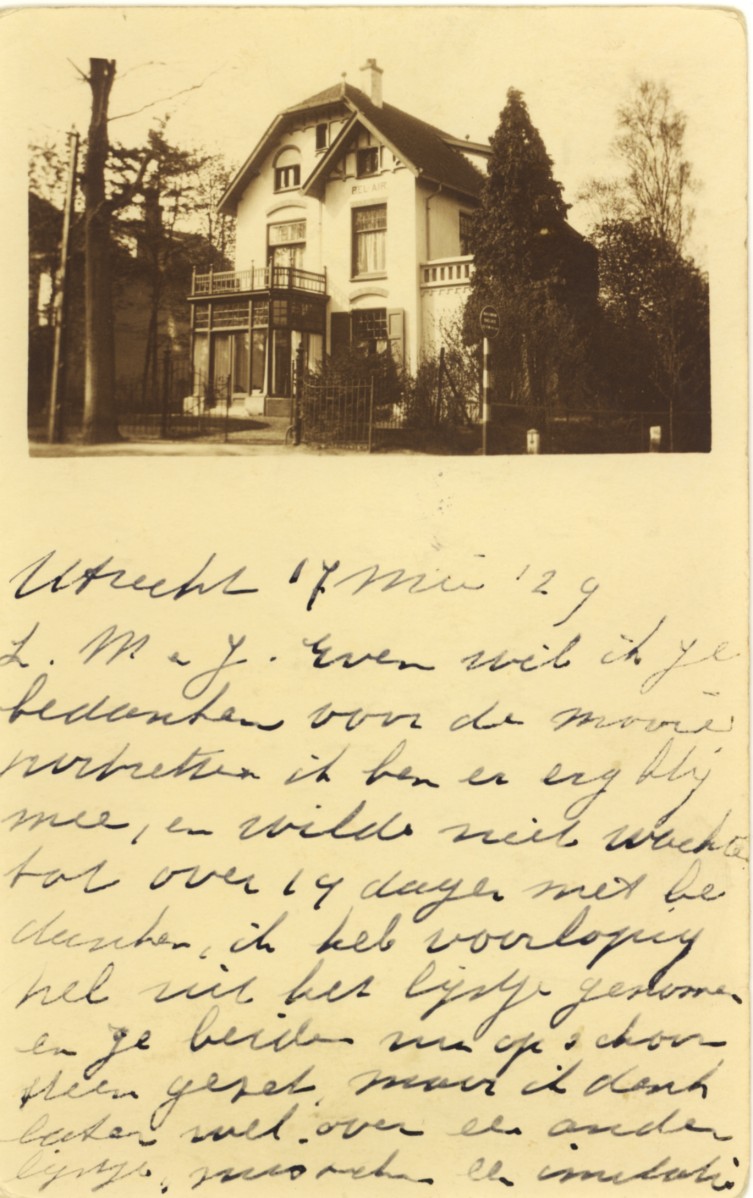 BEL AIR
Utrecht 17 Mei '29
L. M e J. Even wil ik je
bedanken voor de mooie
portretten ik ben er erg blij
mee, en wilde niet wachten
tot over 14 dagen met be
danken, ik heb voorlopig
uit het lijstje genomen
en je beiden nu op schoor
steen gezet, maar ik denk
later wel over een ander
lijstje, misschien een imitatie